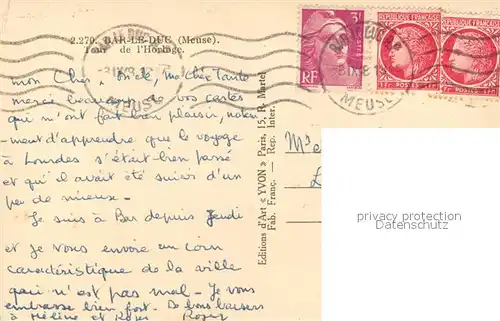 2.270. BAR-LE-DUC (Meuse).
Tour de l'Horloge.
mon Cher Oncle, ma chère Tante
merci beaucoup de vos cartes
qui m'ont fait bien plaisir, notam-
-ment d'apprendre que le voyage
à Lourdes s'était bien passé
et qu'il avait été suivi d'un
peu de mieux.
Je suis à Bar depuis Jeudi
et je vous envoie un coin
caractéristique de la ville
qui n'est pas mal - Je vous
embrasse bien fort. De bons baisers
à Hélène et Roger
Editions d'Art "YVON" Paris, 15, R. Martel
Fab. Franç. — Rep. Inter.
3F
RF
REPUBLIQUE FRANÇAISE
1F POSTES 1F
REPUBLIQUE FRANÇAISE
1F POSTES 1F
BAR LE DUC
MEUSE
BAR LE DUC
MEUSE
privacy protection
Datenschutz